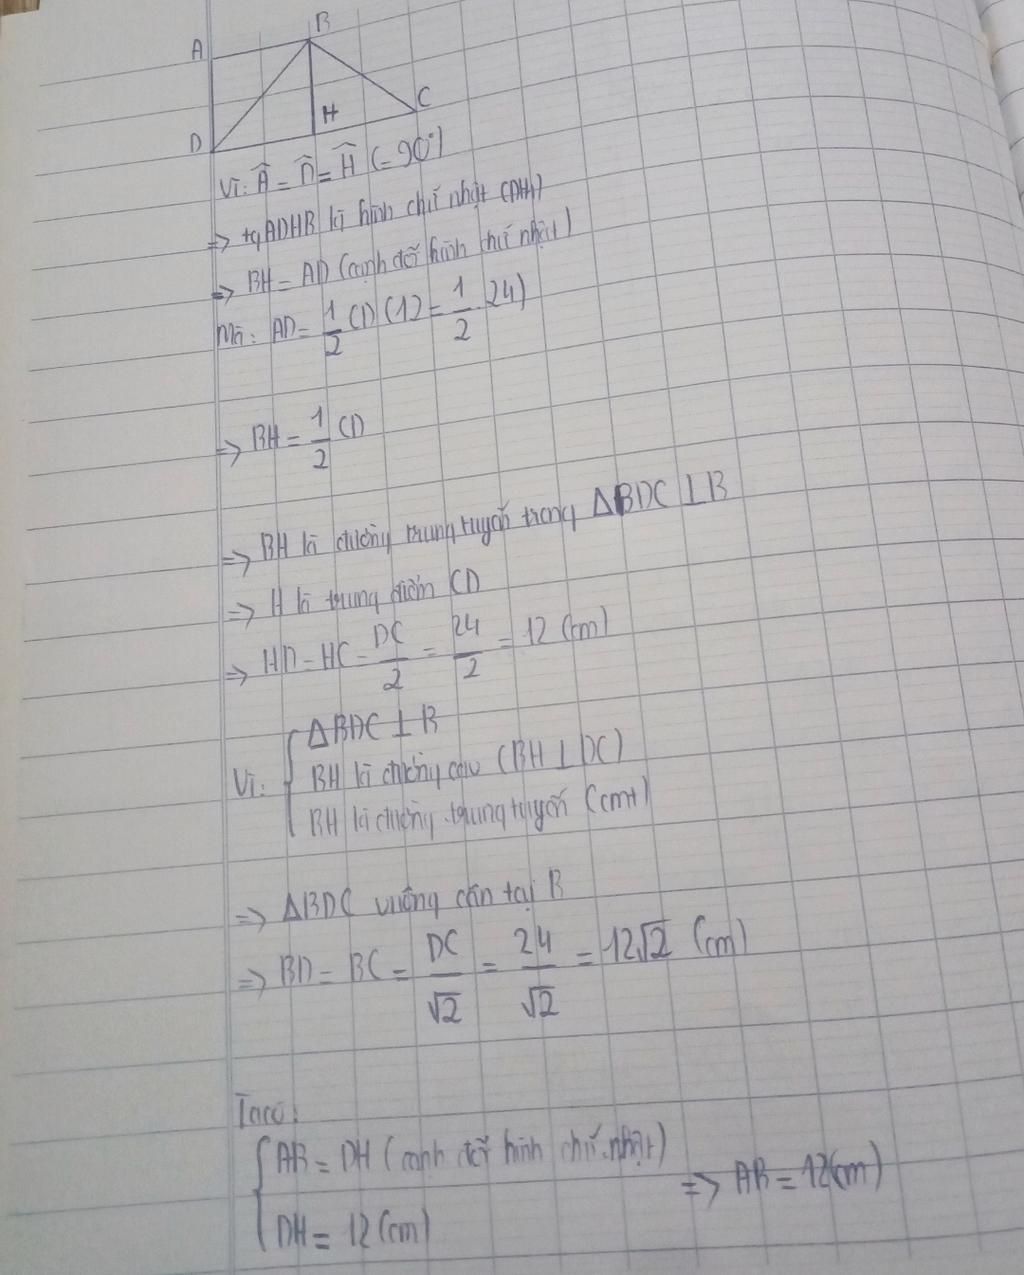 A
B
H
C
D
Vì: Â = D̂ = Ĥ (= 90°)
=> tg ADHB là hình chữ nhật (DHN)
=> BH = AD (cạnh đối hình chữ nhật)
Mà: AD = 1/2 CD (12 = 1/2 . 24)
=> BH = 1/2 CD
=> BH là đường trung tuyến trong ΔBDC ⊥ B
=> H là trung điểm CD
=> HD = HC = DC/2 = 24/2 = 12 (cm)
Vì: { ΔBDC ⊥ B
BH là đường cao (BH ⊥ DC)
BH là đường trung tuyến (cmt)
=> ΔBDC vuông cân tại B
=> BD = BC = DC/√2 = 24/√2 = 12√2 (cm)
Ta có:
{ AB = DH (cạnh đối hình chữ nhật) => AB = 12 (cm)
DH = 12 (cm)